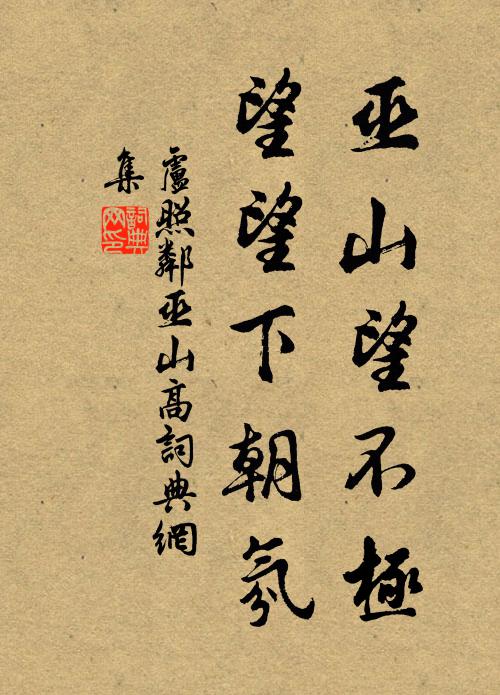 巫山望不極
望望下朝氛
盧照鄰巫山高詞典網
集
詞典网印